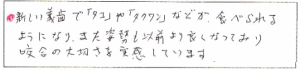 新しい義歯で「タコ」や「タクワン」などが、食べられる
ようになり、また姿勢も以前より良くなっており
咬合の大切さを実感しています。